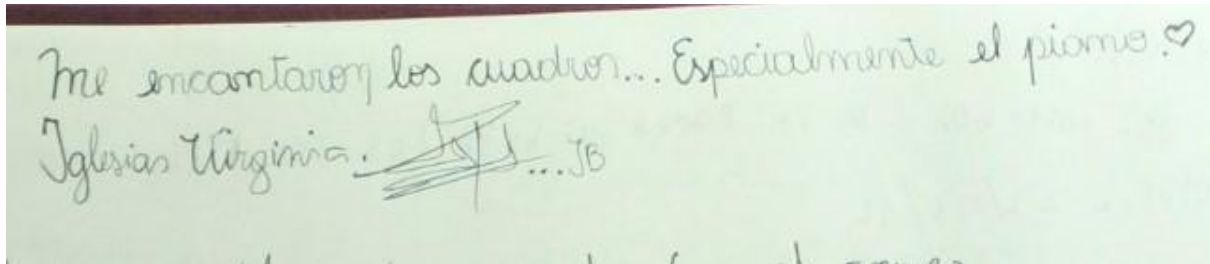 Me encantaron los cuadros... Especialmente el piano.♡
Iglesias Virginia. ...JB